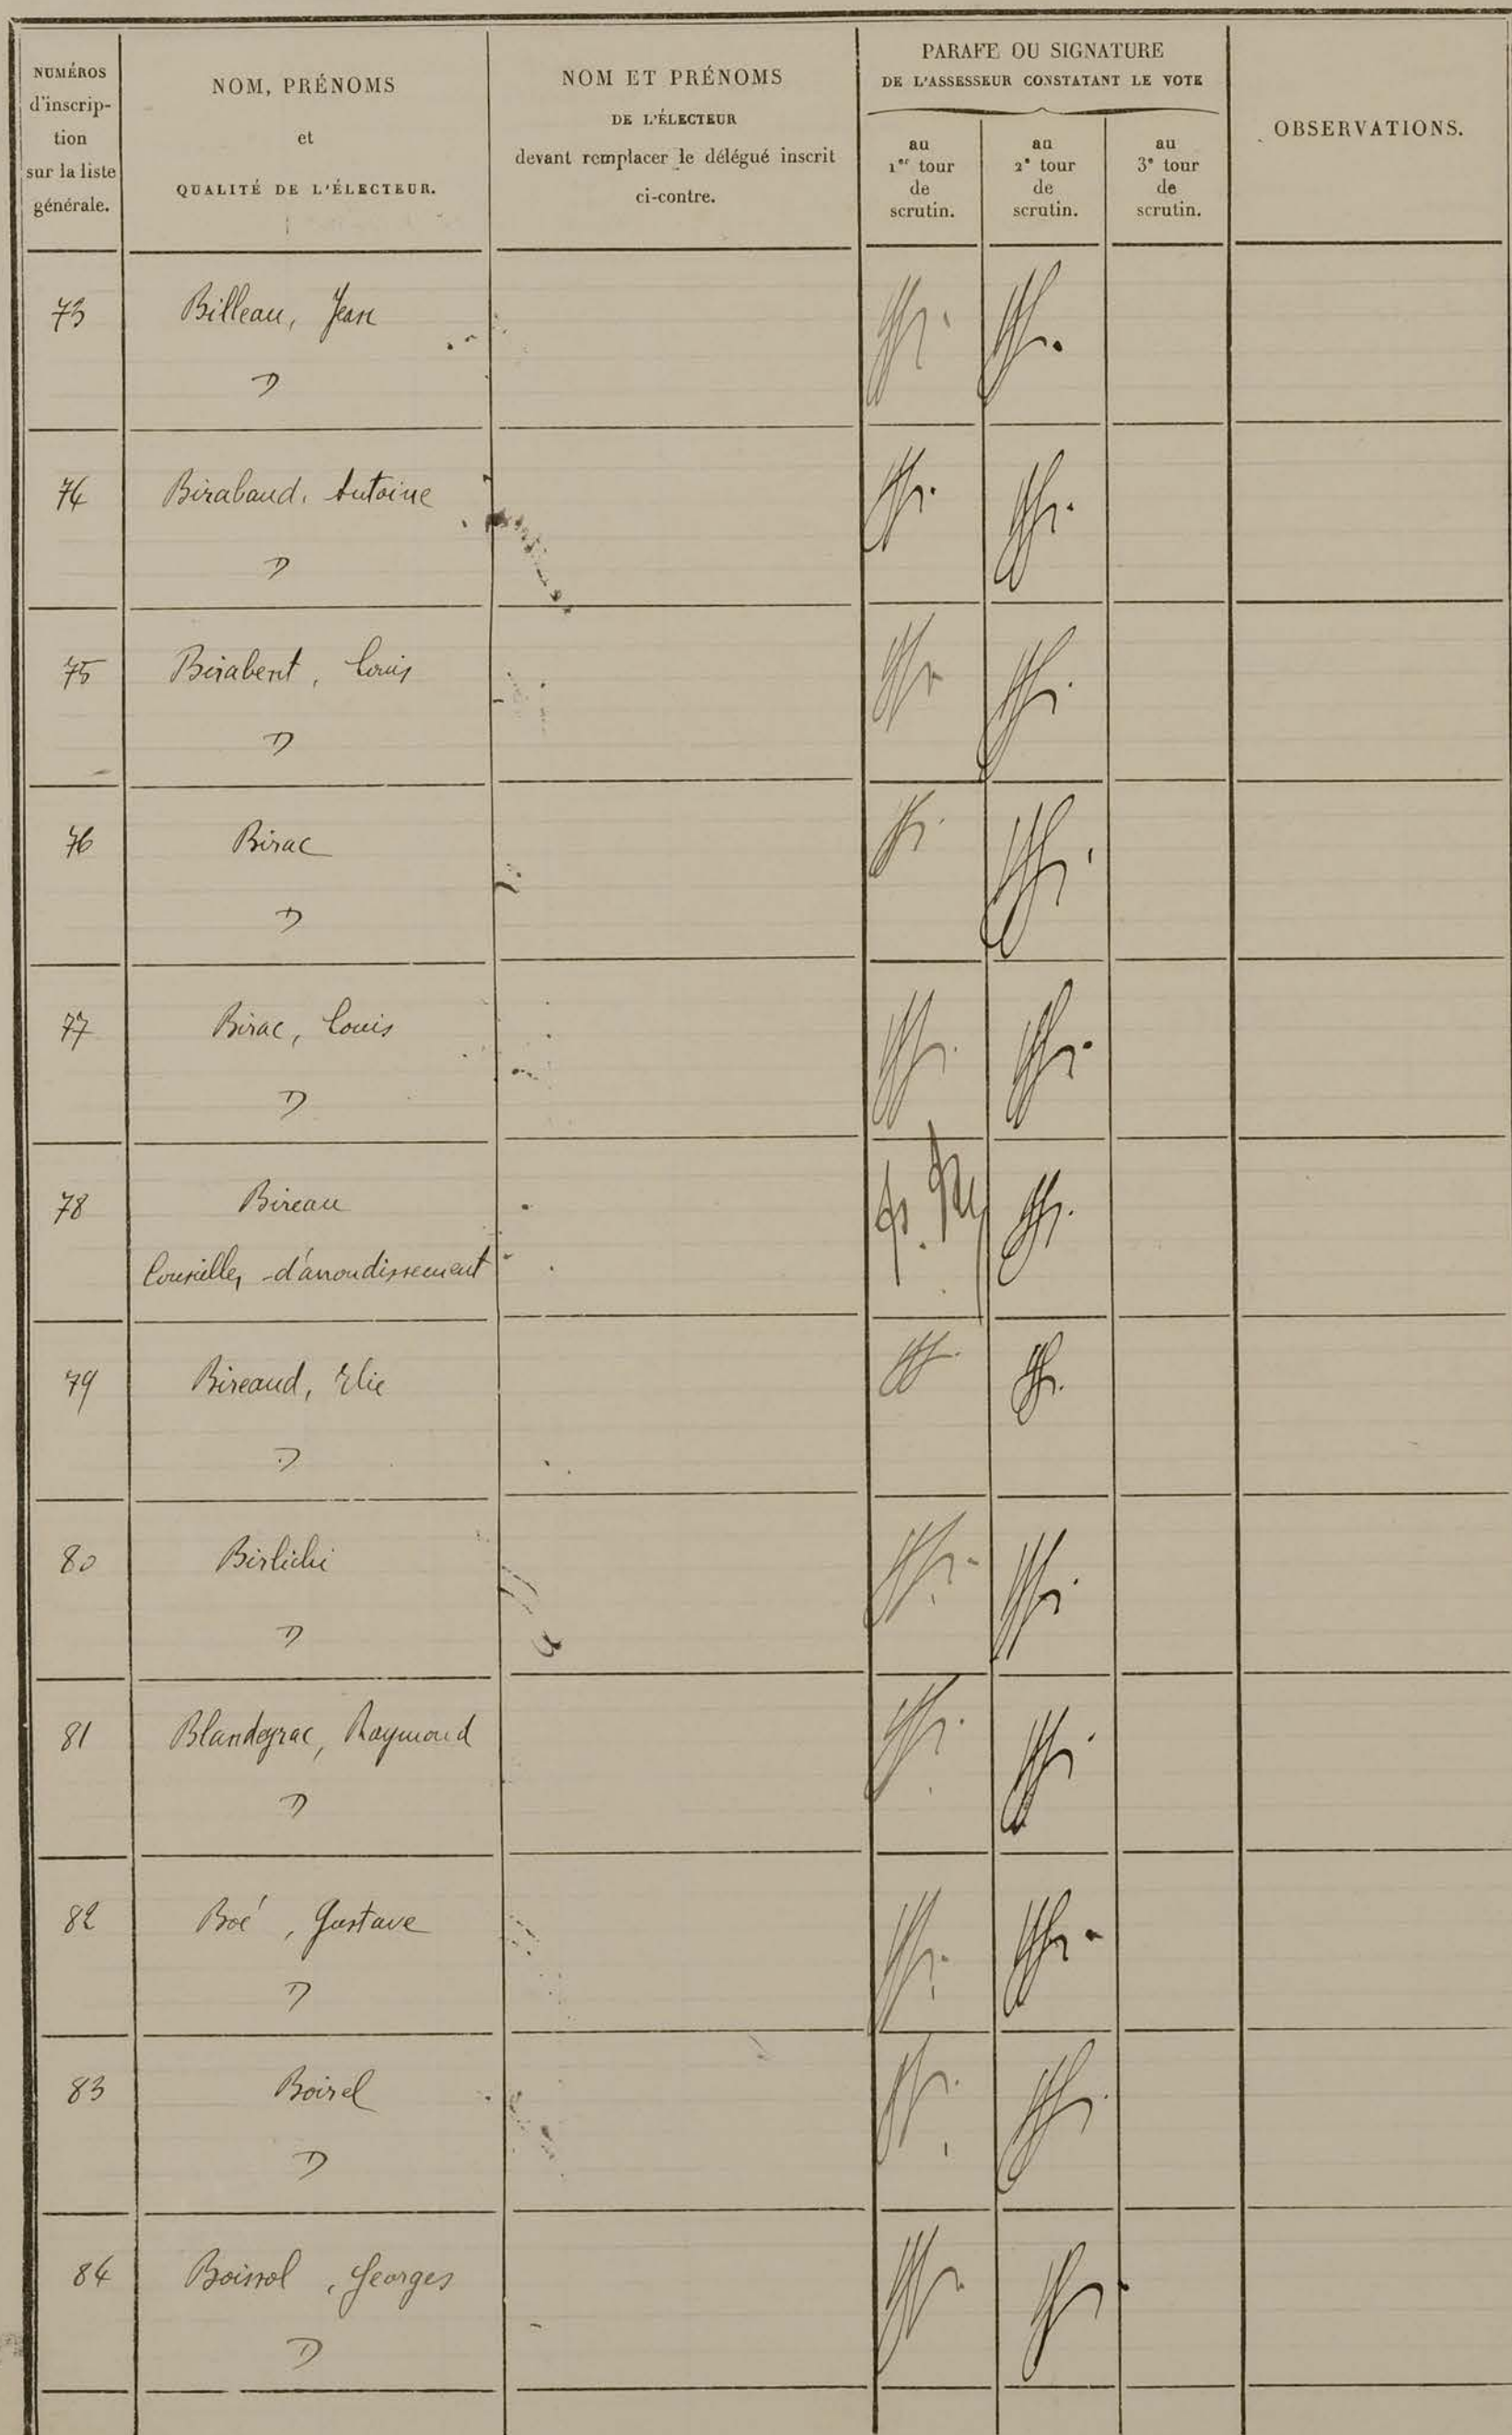 NUMÉROS
d'inscrip-
tion
sur la liste
générale.
NOM, PRÉNOMS
et
QUALITÉ DE L'ÉLECTEUR.
NOM ET PRÉNOMS
DE L'ÉLECTEUR
devant remplacer le délégué inscrit
ci-contre.
PARAFE OU SIGNATURE
DE L'ASSESSEUR CONSTATANT LE VOTE
au
1er tour
de
scrutin.
au
2e tour
de
scrutin.
au
3e tour
de
scrutin.
OBSERVATIONS.
73 Billeau, Jean
D
74 Birabaud, Antoine
D
75 Birabent, Louis
D
76 Birac
D
77 Birac, Louis
D
78 Bireau
Conseiller, d'arrondissement
79 Bireaud, Elie
D
80 Birlichi
D
81 Blandeyrac, Raymond
D
82 Boé, Gustave
D
83 Boirel
D
84 Boissol, Georges
D